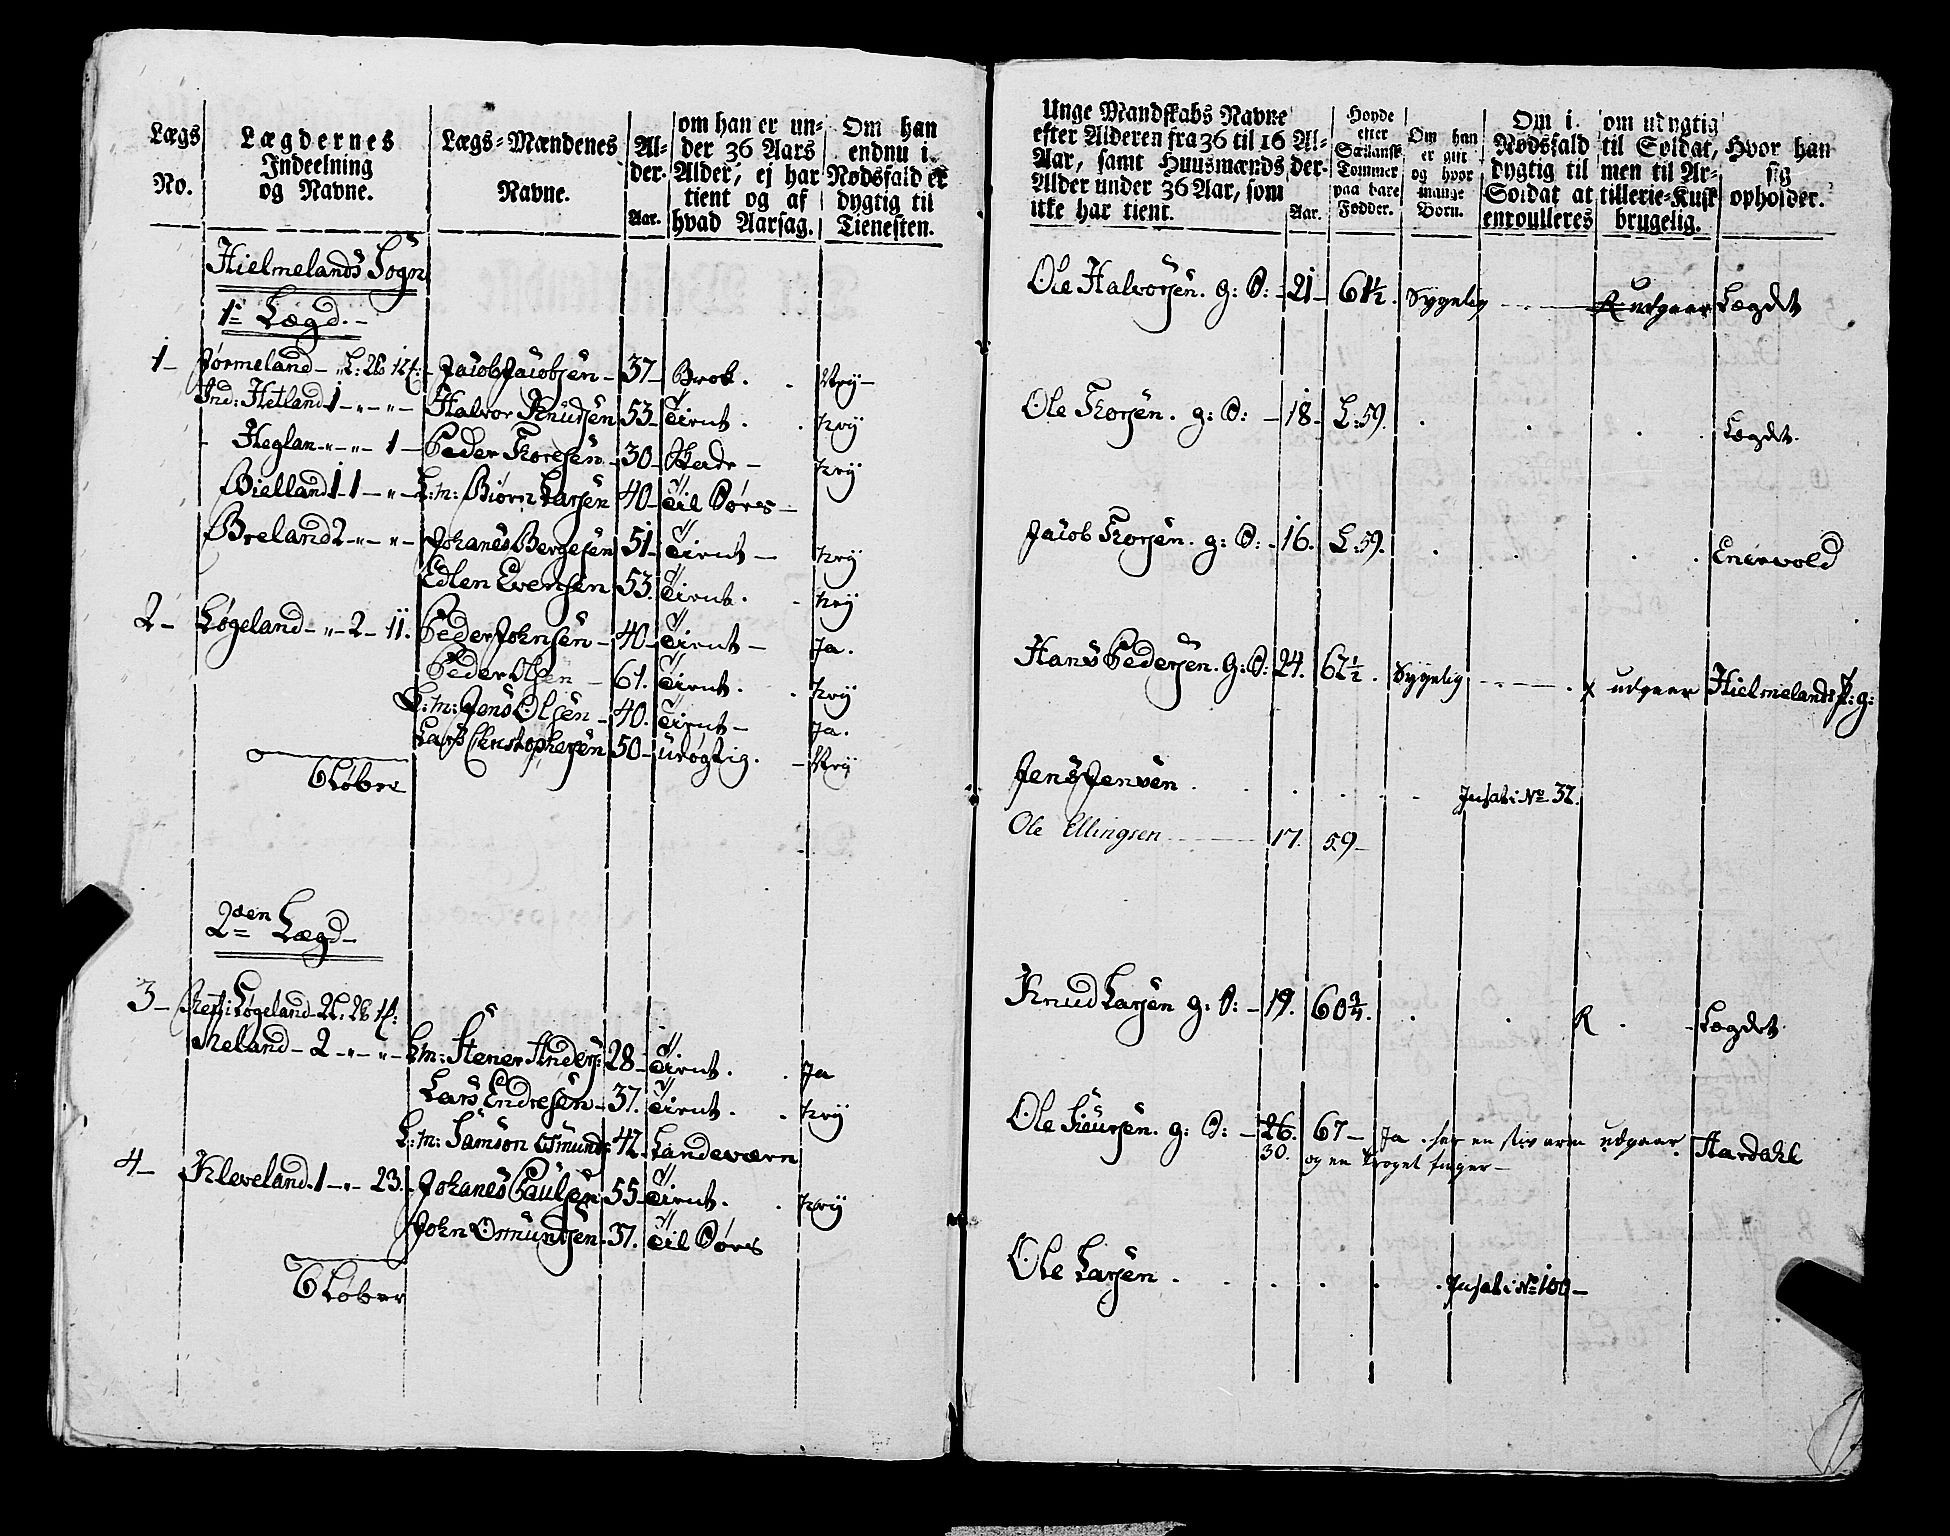 Lægs No.
Lægdernes Indeelning og Navne.
Lægs-Mændenes Navne.
Alder. Aar.
om han er under 36 Aars Alder, ej har tient og af hvad Aarsag.
Om han endnu i Nødsfald er dygtig til Tienesten.
Hielmelands Sogn
1e Lægd.
1 - Jørmeland - Jacob Jacobsen - 37 - Brok.
Ind: Hetland 1 - " - " - Halvor Knudsen 53 - Tient.
Heglan - " - " 1 - Peder Thoresen - 30 -
Bielland 1 - 1 - " - L:m: Biørn Larsen 40 - Til Søes -
Breland 2 - " - " - Johanes Bergesen 51 - Tient -
Edlen Evensen 53. Tient.
2 - Løgeland - " - 2 - 11. Peder Johnsen - 40 - Tient - Ja.
Peder Olsen - 61. Tient.
L:m: Jens Olsen - 40. Tient - Ja.
Lars Christophersen 50 - urøgtig.
6 Løber
2den Lægd -
3 - Løgeland
Meland - 2 - " - " - L:m: Stener Anders: 28 - Tient. Ja
Lars Endresen - 37. Tient.
L:m: Samson Osmunds 42. Landeværn
4 - Kleveland. 1 - " - 23. Johanes Paulsen 55 - Tient.
John Osmundsen - 37. Til Søes
6 Løber
Unge Mandskabs Navne efter Alderen fra 36 til 16 Aar, samt Huusmænds Alder under 36 Aar, som ikke har tient.
Alder. Aar.
Høyde efter Sællansk Tommer paa bare Fødder.
Om han er gift og hvor mange Børn.
Om i Nødsfald dygtig til Soldat at enroulleres
om udygtig til Soldat, men til Artillerie-Kusk brugelig.
Hvor han sig opholder.
Ole Halvorsen. g: S: - 21 - 61½. Sygelig - udgaar Lægdet
Ole Thorsen. g: S: - 18 - L: 59. Lægdet.
Jacob Thorsen. g: S: - 16. L: 59. Enervold
Hans Pedersen. g: S: 24. 62½. Sygelig - x udgaar Hielmelands P: g:
Jens Jensen. Insat i No 32.
Ole Ellingsen 17. 59 -
Knud Larsen g: S: - 19. 60¾. R Lægdet
Ole Siursen. g: S: - 26. 67 - Ja. har en stiv arm udgaar Hardahl
30. og en kroget finger -
Ole Larsen. Insat i No 100 -